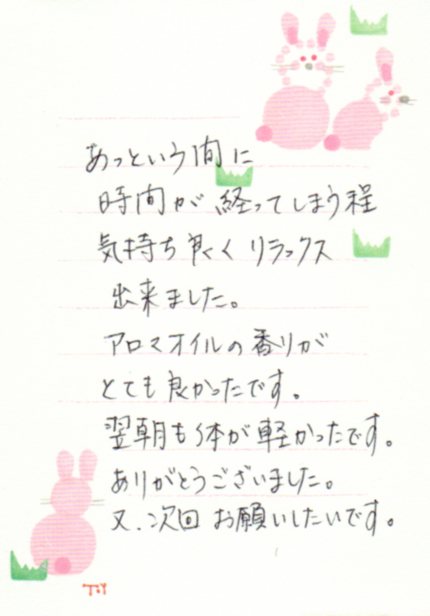 あっという間に
時間が経ってしまう程
気持ち良くリラックス
出来ました。
アロマオイルの香りが
とても良かったです。
翌朝も体が軽かったです。
ありがとうございました。
又、次回お願いしたいです。